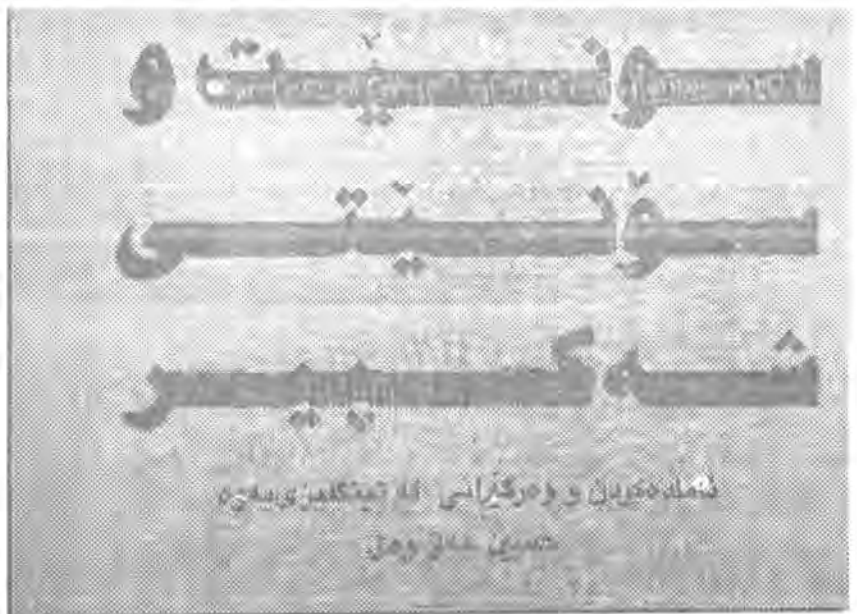 سونێت و
سۆنێتی
شەکسپیر
ئامادەکردن و وەرگێڕانی لە ئینگلیزییەوە